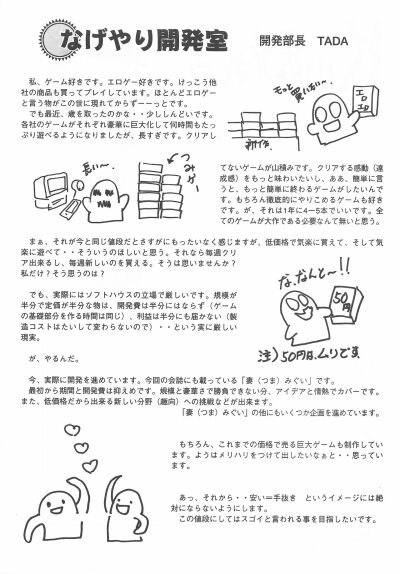 なげやり開発室
開発部長　TADA
私、ゲーム好きです。エロゲー好きです。けっこう他
社の商品も買ってプレイしています。ほとんどエロゲー
と言う物がこの世に現れてからずーーっとです。
でも最近、歳を取ったのかな・・少ししんどいです。
各社のゲームがそれぞれ豪華に巨大化して何時間もたっ
ぷり遊べるようになりましたが、長すぎです。クリアし
もっと買いたい〜
エロ
エロ
新作
長い〜
つみゲー
てないゲームが山積みです。クリアする感動（達
成感）をもっと味わいたいし、ああ、簡単に言
うと、もっと簡単に終わるゲームがしたいんで
す。もちろん徹底的にやりこめるゲームも好き
ですが、それは1年に4−5本でいいです。全
てのゲームが大作である必要なんて無いと思う。
まぁ、それが今と同じ値段だとさすがにもったいなく感じますが、低価格で気楽に買えて、そして気
楽に遊べて・・そういうのほしいと思う。それなら毎週クリ
ア出来るし、毎週新しいのを買える。そうは思いませんか？
私だけ？そう思うのは？
な、なんと〜！！
50円
注）50円は、ムリです
でも、実際にはソフトハウスの立場で厳しいです。規模が
半分で定価が半分な物は、開発費は半分にはならず（ゲーム
の基礎部分を作る時間は同じ）、利益は半分にも届かない（製
造コストはたいして変わらないので）・・という実に厳しい
現実。
が、やるんだ。
今、実際に開発を進めています。今回の会誌にも載っている「妻（つま）みぐい」です。
最初から期間と開発費は抑えめです。規模と豪華さで勝負できない分、アイデアと情熱でカバーです。
また、低価格だから出来る新しい分野（趣向）への挑戦などが出来ます。
「妻（つま）みぐい」の他にもいくつか企画を進めています。
もちろん、これまでの価格で売る巨大ゲームも制作してい
ます。ようはメリハリをつけて出したいなぁと・・思ってい
ます。
あっ、それから・・安い＝手抜き　というイメージには絶
対にならないようにします。
この値段にしてはスゴイと言われる事を目指したいです。